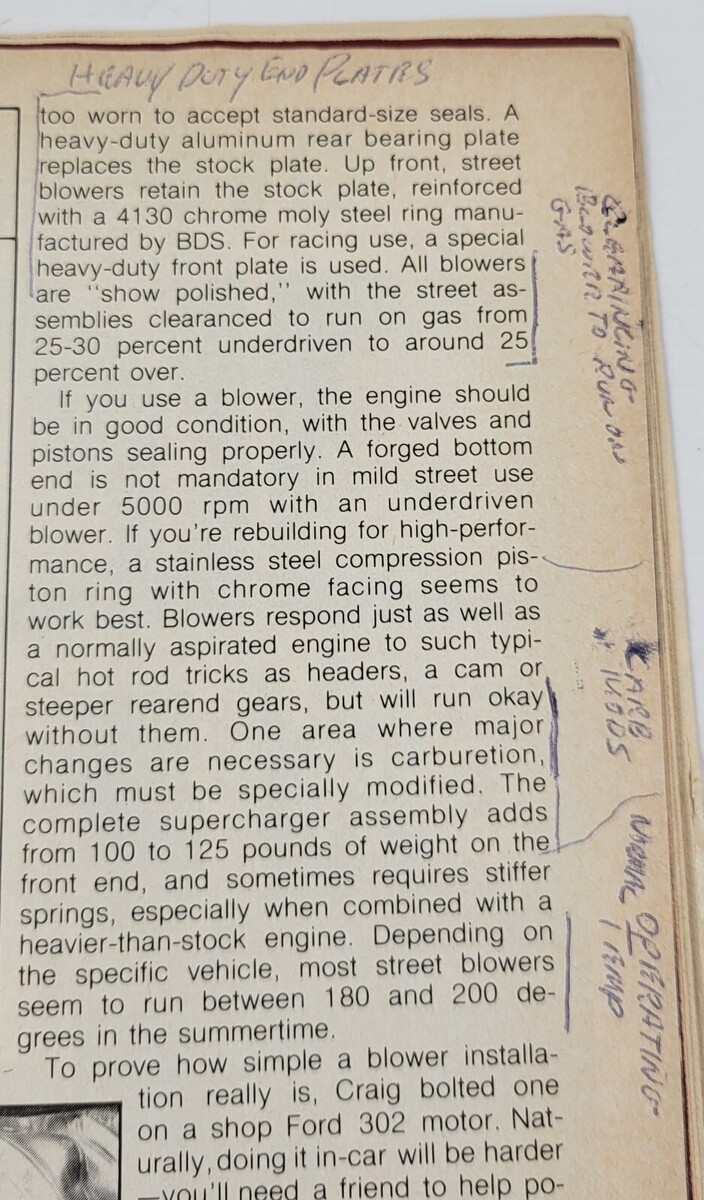 HEAVY DUTY END PLATES
too worn to accept standard-size seals. A
heavy-duty aluminum rear bearing plate
replaces the stock plate. Up front, street
blowers retain the stock plate, reinforced
with a 4130 chrome moly steel ring manu-
factured by BDS. For racing use, a special
heavy-duty front plate is used. All blowers
are “show polished,” with the street as-
semblies clearanced to run on gas from
25-30 percent underdriven to around 25
percent over.
If you use a blower, the engine should
be in good condition, with the valves and
pistons sealing properly. A forged bottom
end is not mandatory in mild street use
under 5000 rpm with an underdriven
blower. If you're rebuilding for high-perfor-
mance, a stainless steel compression pis-
ton ring with chrome facing seems to
work best. Blowers respond just as well as
a normally aspirated engine to such typi-
cal hot rod tricks as headers, a cam or
steeper rearend gears, but will run okay
without them. One area where major
changes are necessary is carburetion,
which must be specially modified. The
complete supercharger assembly adds
from 100 to 125 pounds of weight on the
front end, and sometimes requires stiffer
springs, especially when combined with a
heavier-than-stock engine. Depending on
the specific vehicle, most street blowers
seem to run between 180 and 200 de-
grees in the summertime.
To prove how simple a blower installa-
tion really is, Craig bolted one
on a shop Ford 302 motor. Nat-
urally, doing it in-car will be harder
—you'll need a friend to help po-
BLOWER TO RUN ON
GAS
CARB
MODS
NORMAL OPERATING
TEMP